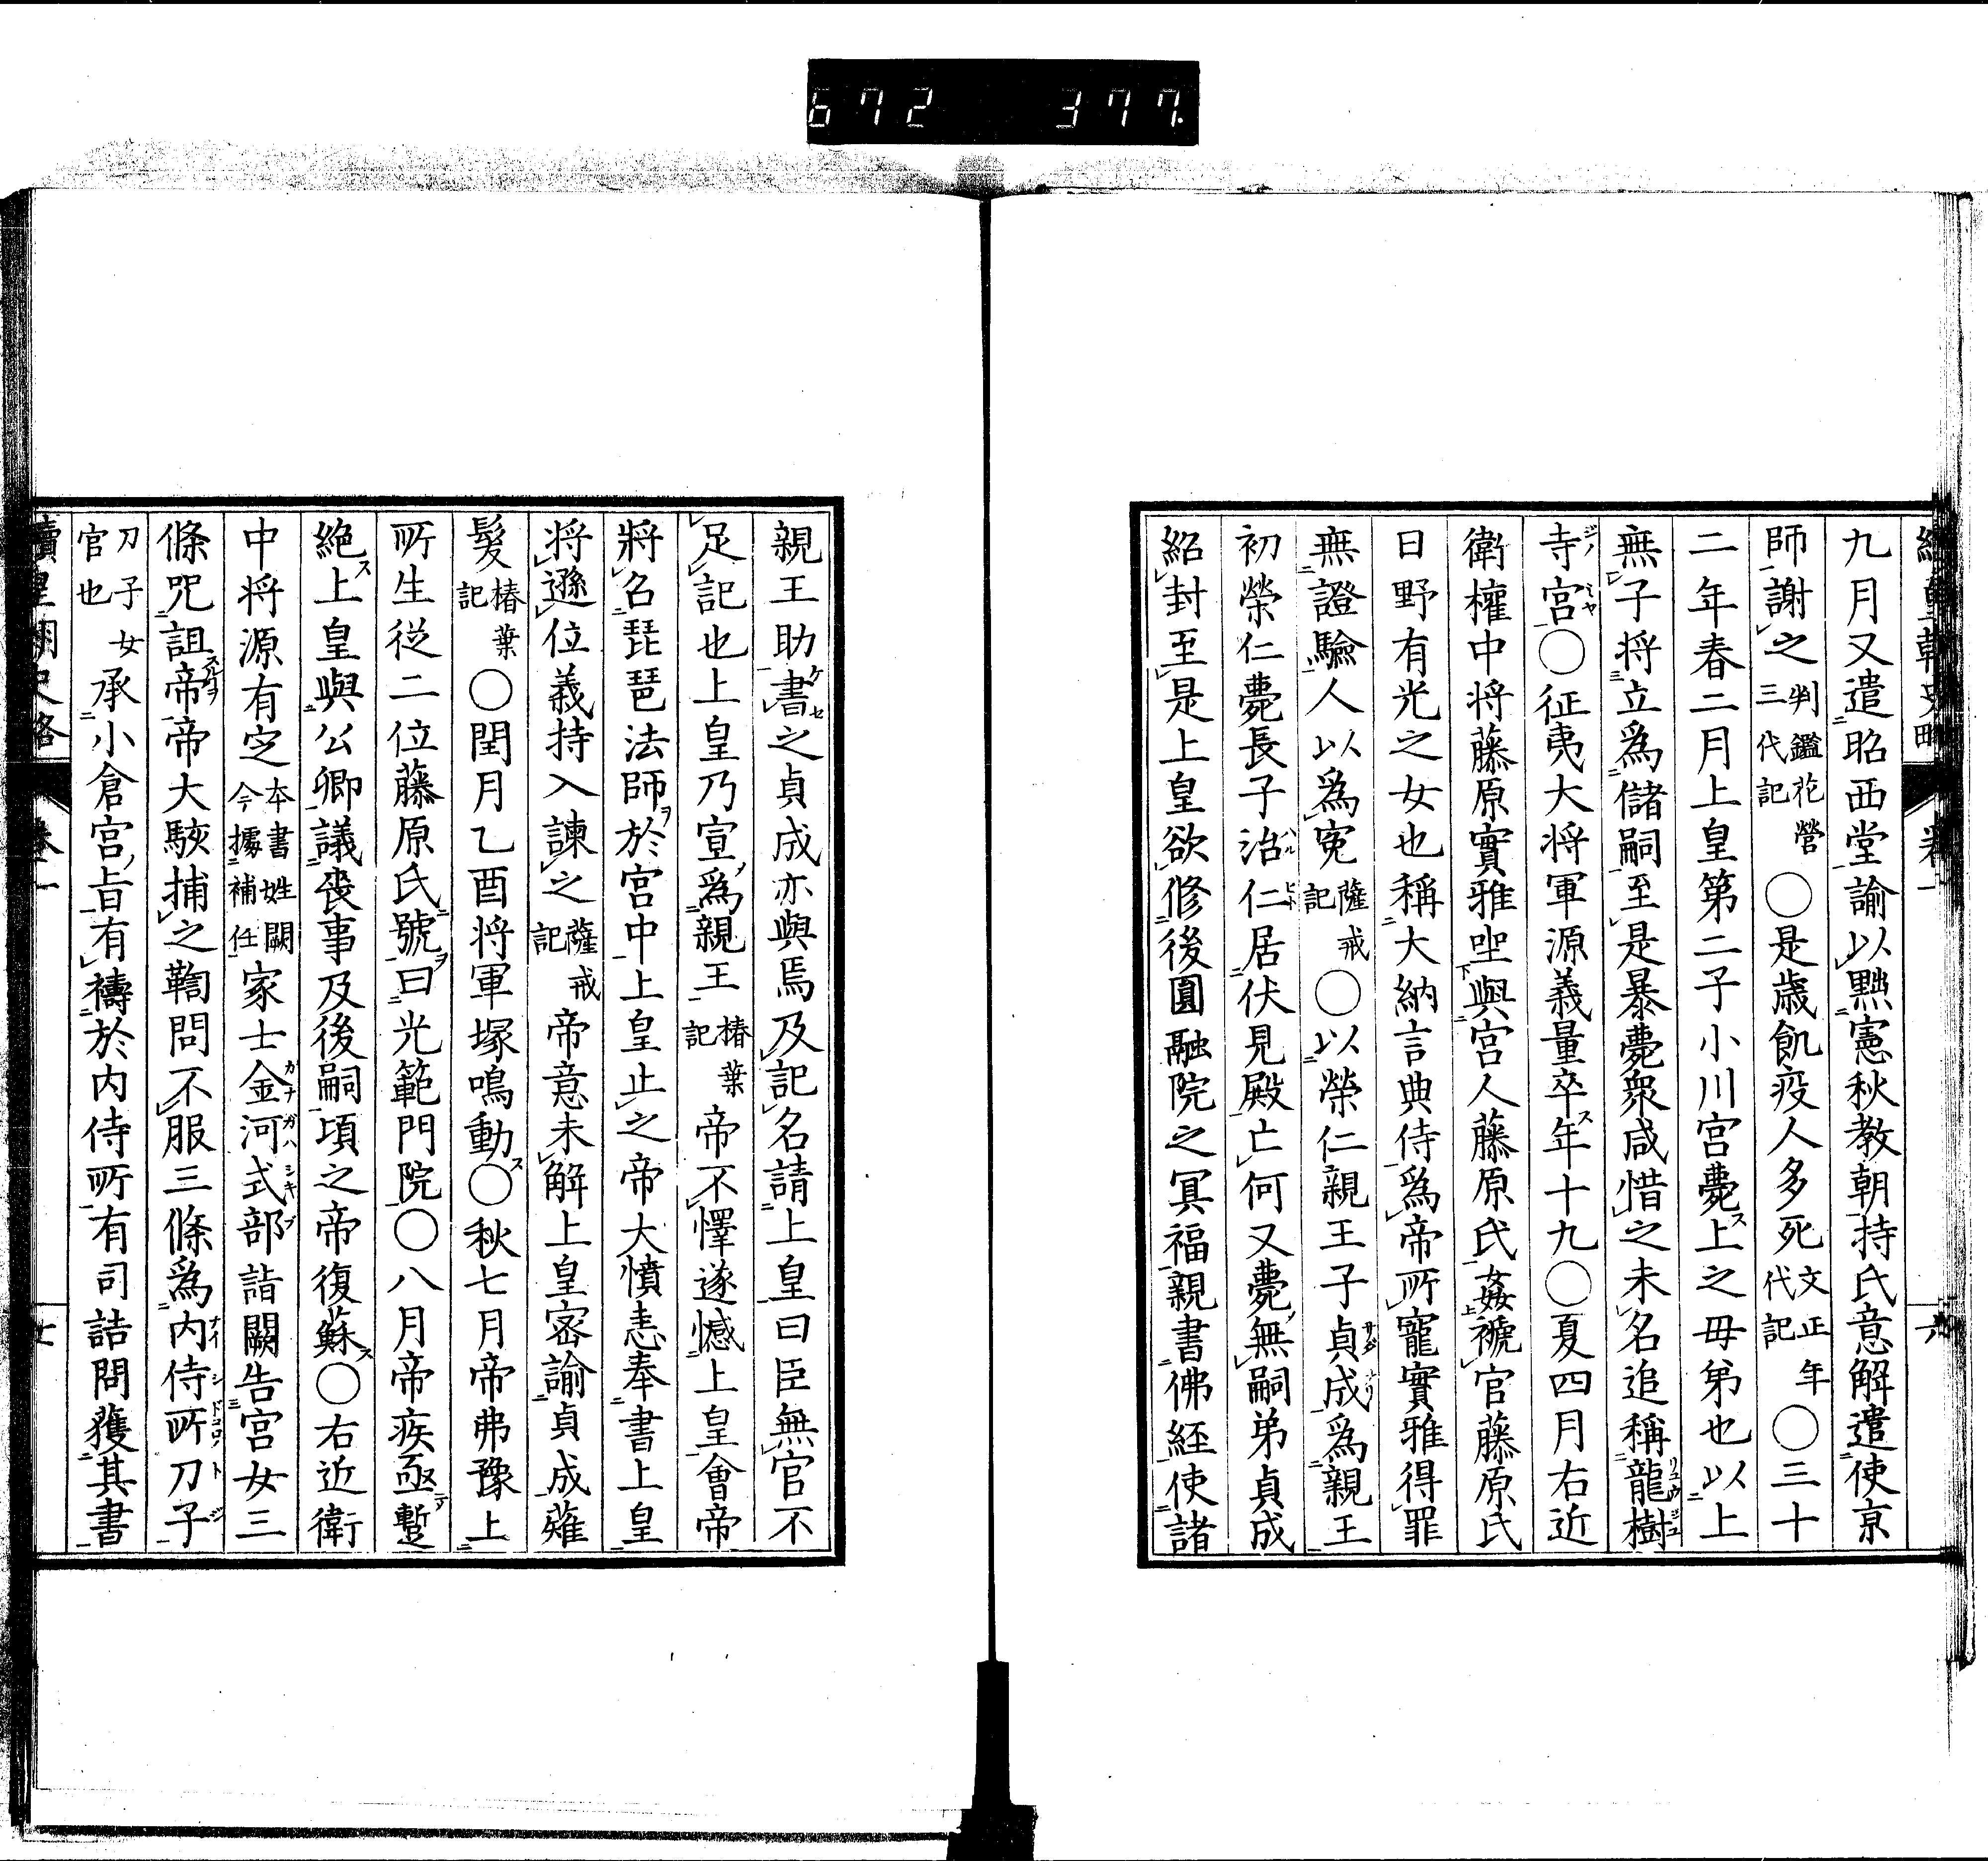 672 377.
九月又遣昭西堂諭以黜憲秋教朝持氏意解遣使京
師謝之判鑑花營三代記○是歲飢疫人多死文正年代記○三十
二年春二月上皇第二子小川宮薨上之毋弟也以上
無子将立爲儲嗣至是暴薨衆咸惜之未名追稱龍樹
寺宮○征夷大将軍源義量卒年十九○夏四月右近
衛權中将藤原實雅坐與宮人藤原氏姦褫官藤原氏
日野有光之女也稱大納言典侍爲帝所寵實雅得罪
無證驗人以爲寃薩戒記○以榮仁親王子貞成爲親王
初榮仁薨長子治仁居伏見殿亡何又薨無嗣弟貞成
紹封至是上皇欲修後圓融院之冥福親書佛經使諸
親王助書之貞成亦與焉及記名請上皇曰臣無官不
足記也上皇乃宣爲親王椿葉記帝不懌遂憾上皇會帝
將名琵琶法師於宮中上皇止之帝大憤恚奉書上皇
将遜位義持入諫之薩戒記帝意未解上皇密諭貞成薙
髮椿葉記○閏月乙酉将軍塚鳴動○秋七月帝弗豫上
所生從二位藤原氏號曰光範門院○八月帝疾亟蹔
絶上皇與公卿議喪事及後嗣頃之帝復蘇○右近衛
中将源有定本書姓闕今據補任家士金河式部詣闕告宮女三
條咒詛帝帝大駭捕之鞫問不服三條爲内侍所刀子
刀子女官也承小倉宮旨有禱於内侍所有司詰問獲其書